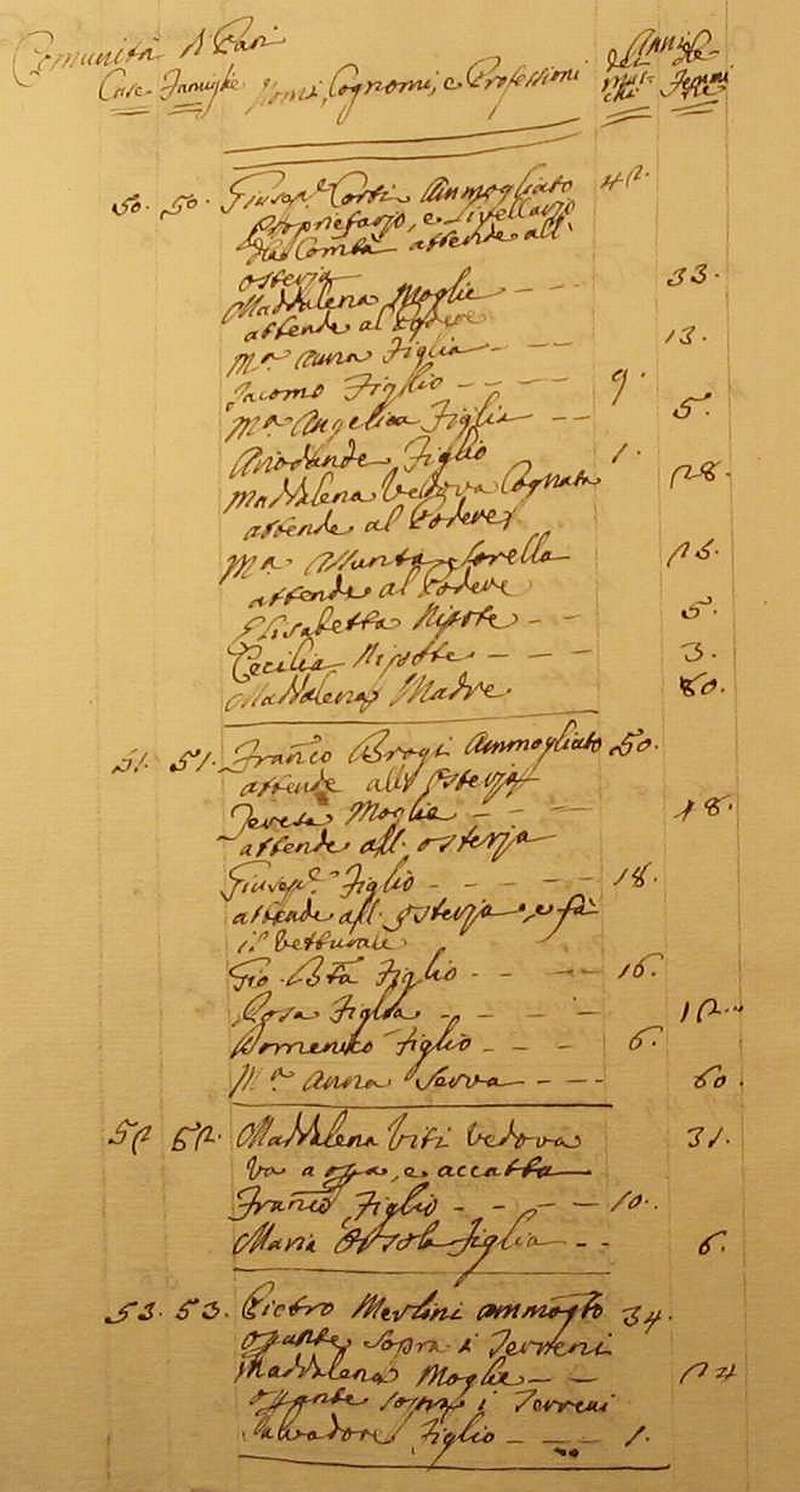 Comunità di Pari
Case Famiglie Nomi, Cognomi, e Professioni Anni dei Maschi delle Femmine
50. 50. Giusep.e Corti Ammogliato 42.
Proprietario, e Livellario
della Com.tà attende all'
osteria
Maddalena Moglie - - - 33.
attende al Podere
M.a Anna Figlia - - - 13.
Jacomo Figlio - - - - 9.
M.a Angelica Figlia - - 5.
Ariodande Figlio 1.
Maddalena Vedova Cognata 28.
attende al Podere
M.a Assunta Sorella 25.
attende al Podere
Elisabetta Nipote - - 5.
Cecilia Nipote - - - - 3.
Maddalena Madre 80.
51. 51. Fran.co Brogi Ammogliato 50.
attende all'Osteria
Teresa Moglie - - - - 48.
attende all'osteria
Giusep.e Figlio - - - - 18.
attende all'Osteria, e fà
il Vetturale
Gio. Bta Figlio - - - - 16.
Rosa Figlia - - - - 12.
Domenico Figlio - - - 6.
M.a Anna Serva - - - - 60.
52 52. Maddalena Viti Vedova 31.
Va a opa, e accatta
Fran.co Figlio - - - - 10.
Maria Orsola Figlia - - 6.
53. 53. Pietro Merlini ammogto 34.
opante sopra i Terreni
Maddalena Moglie - - 24
opante sopra i Terreni
Salvadore Figlio - - - 1.